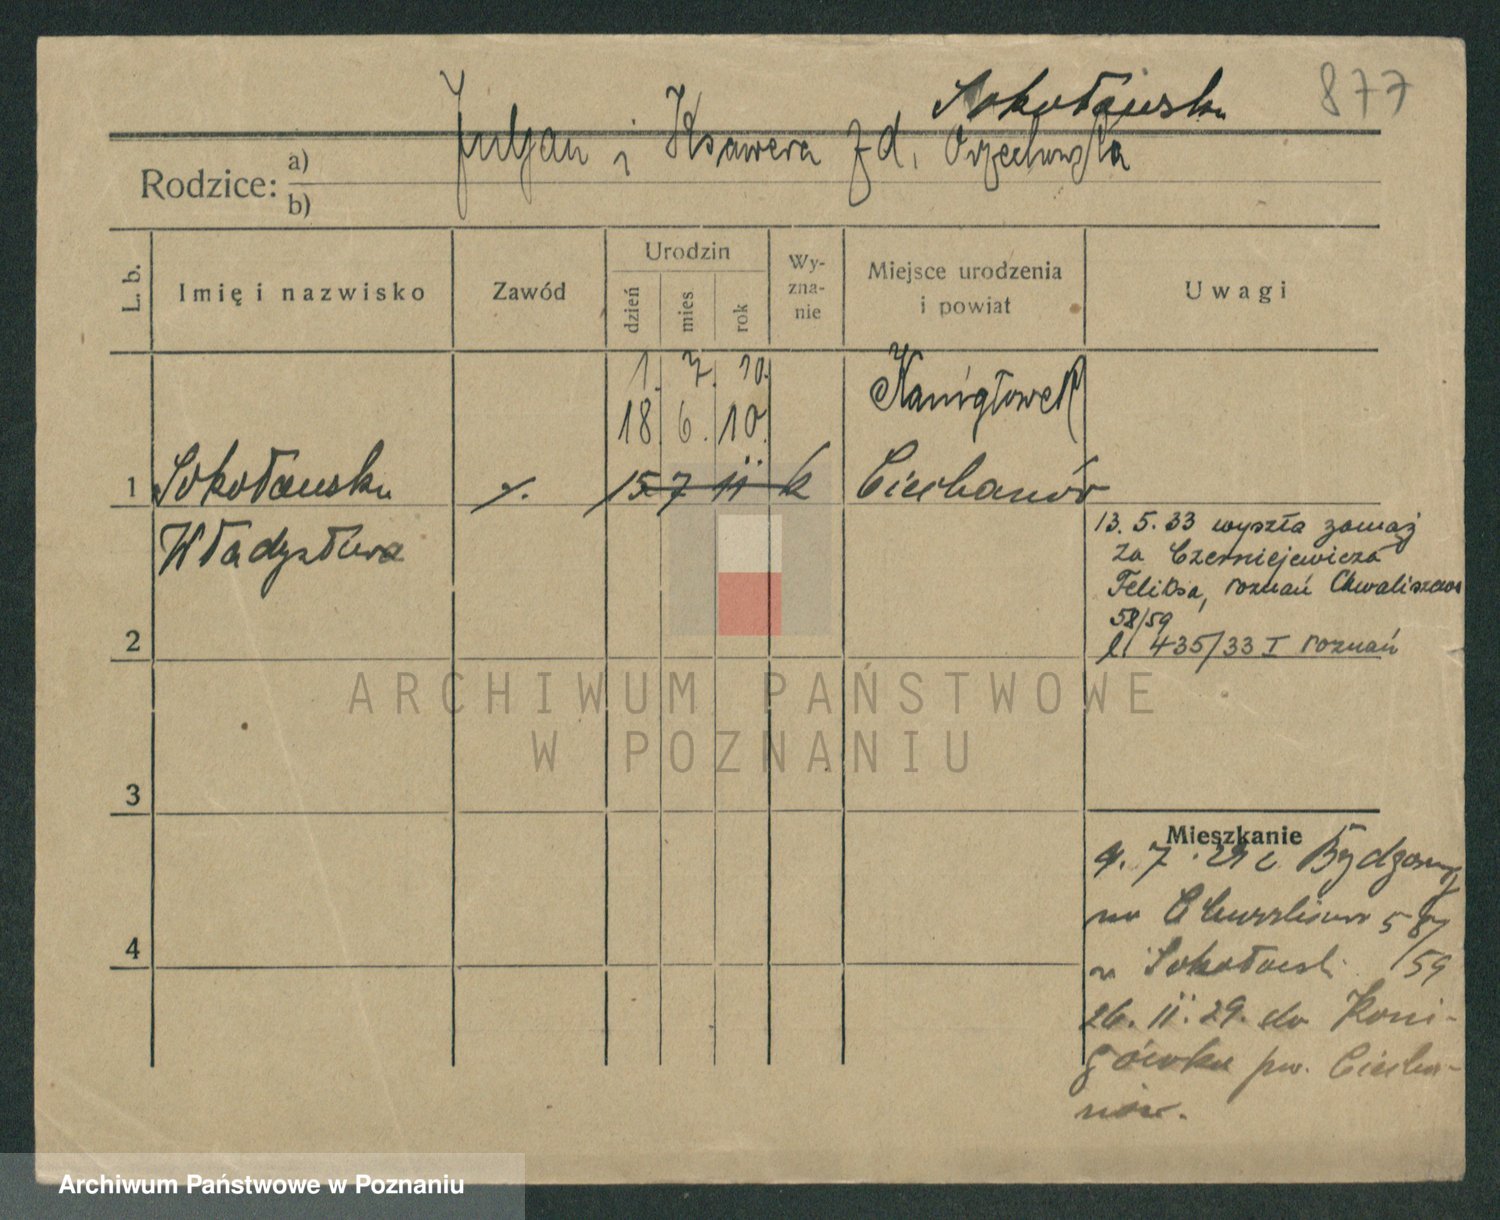 877
Sokołowska
Juljan i Ksawera z d. Orzechowska
Rodzice: a)
b)
L. b.
Imię i nazwisko
Zawód
Urodzin
dzień mies rok
Wy-
zna-
nie
Miejsce urodzenia
i powiat
Uwagi
1. 7. 10.
18. 6. 10.
1 Sokołowska 15 7 11 k Ciechanów
Władysława
13. 5. 33 wyszła zamąż
za Czerniejewicza
Feliksa, Poznań Chwaliszewo
58/59
435/33 I Poznań
2
ARCHIWUM PAŃSTWOWE
W POZNANIU
3
Mieszkanie
7. 29 z Bydgoszczy
na Chwaliszewo 58/
59
u Sokołowski
26. 11. 29. do Koni-
gówka pow. Ciecha-
nów.
4
Archiwum Państwowe w Poznaniu